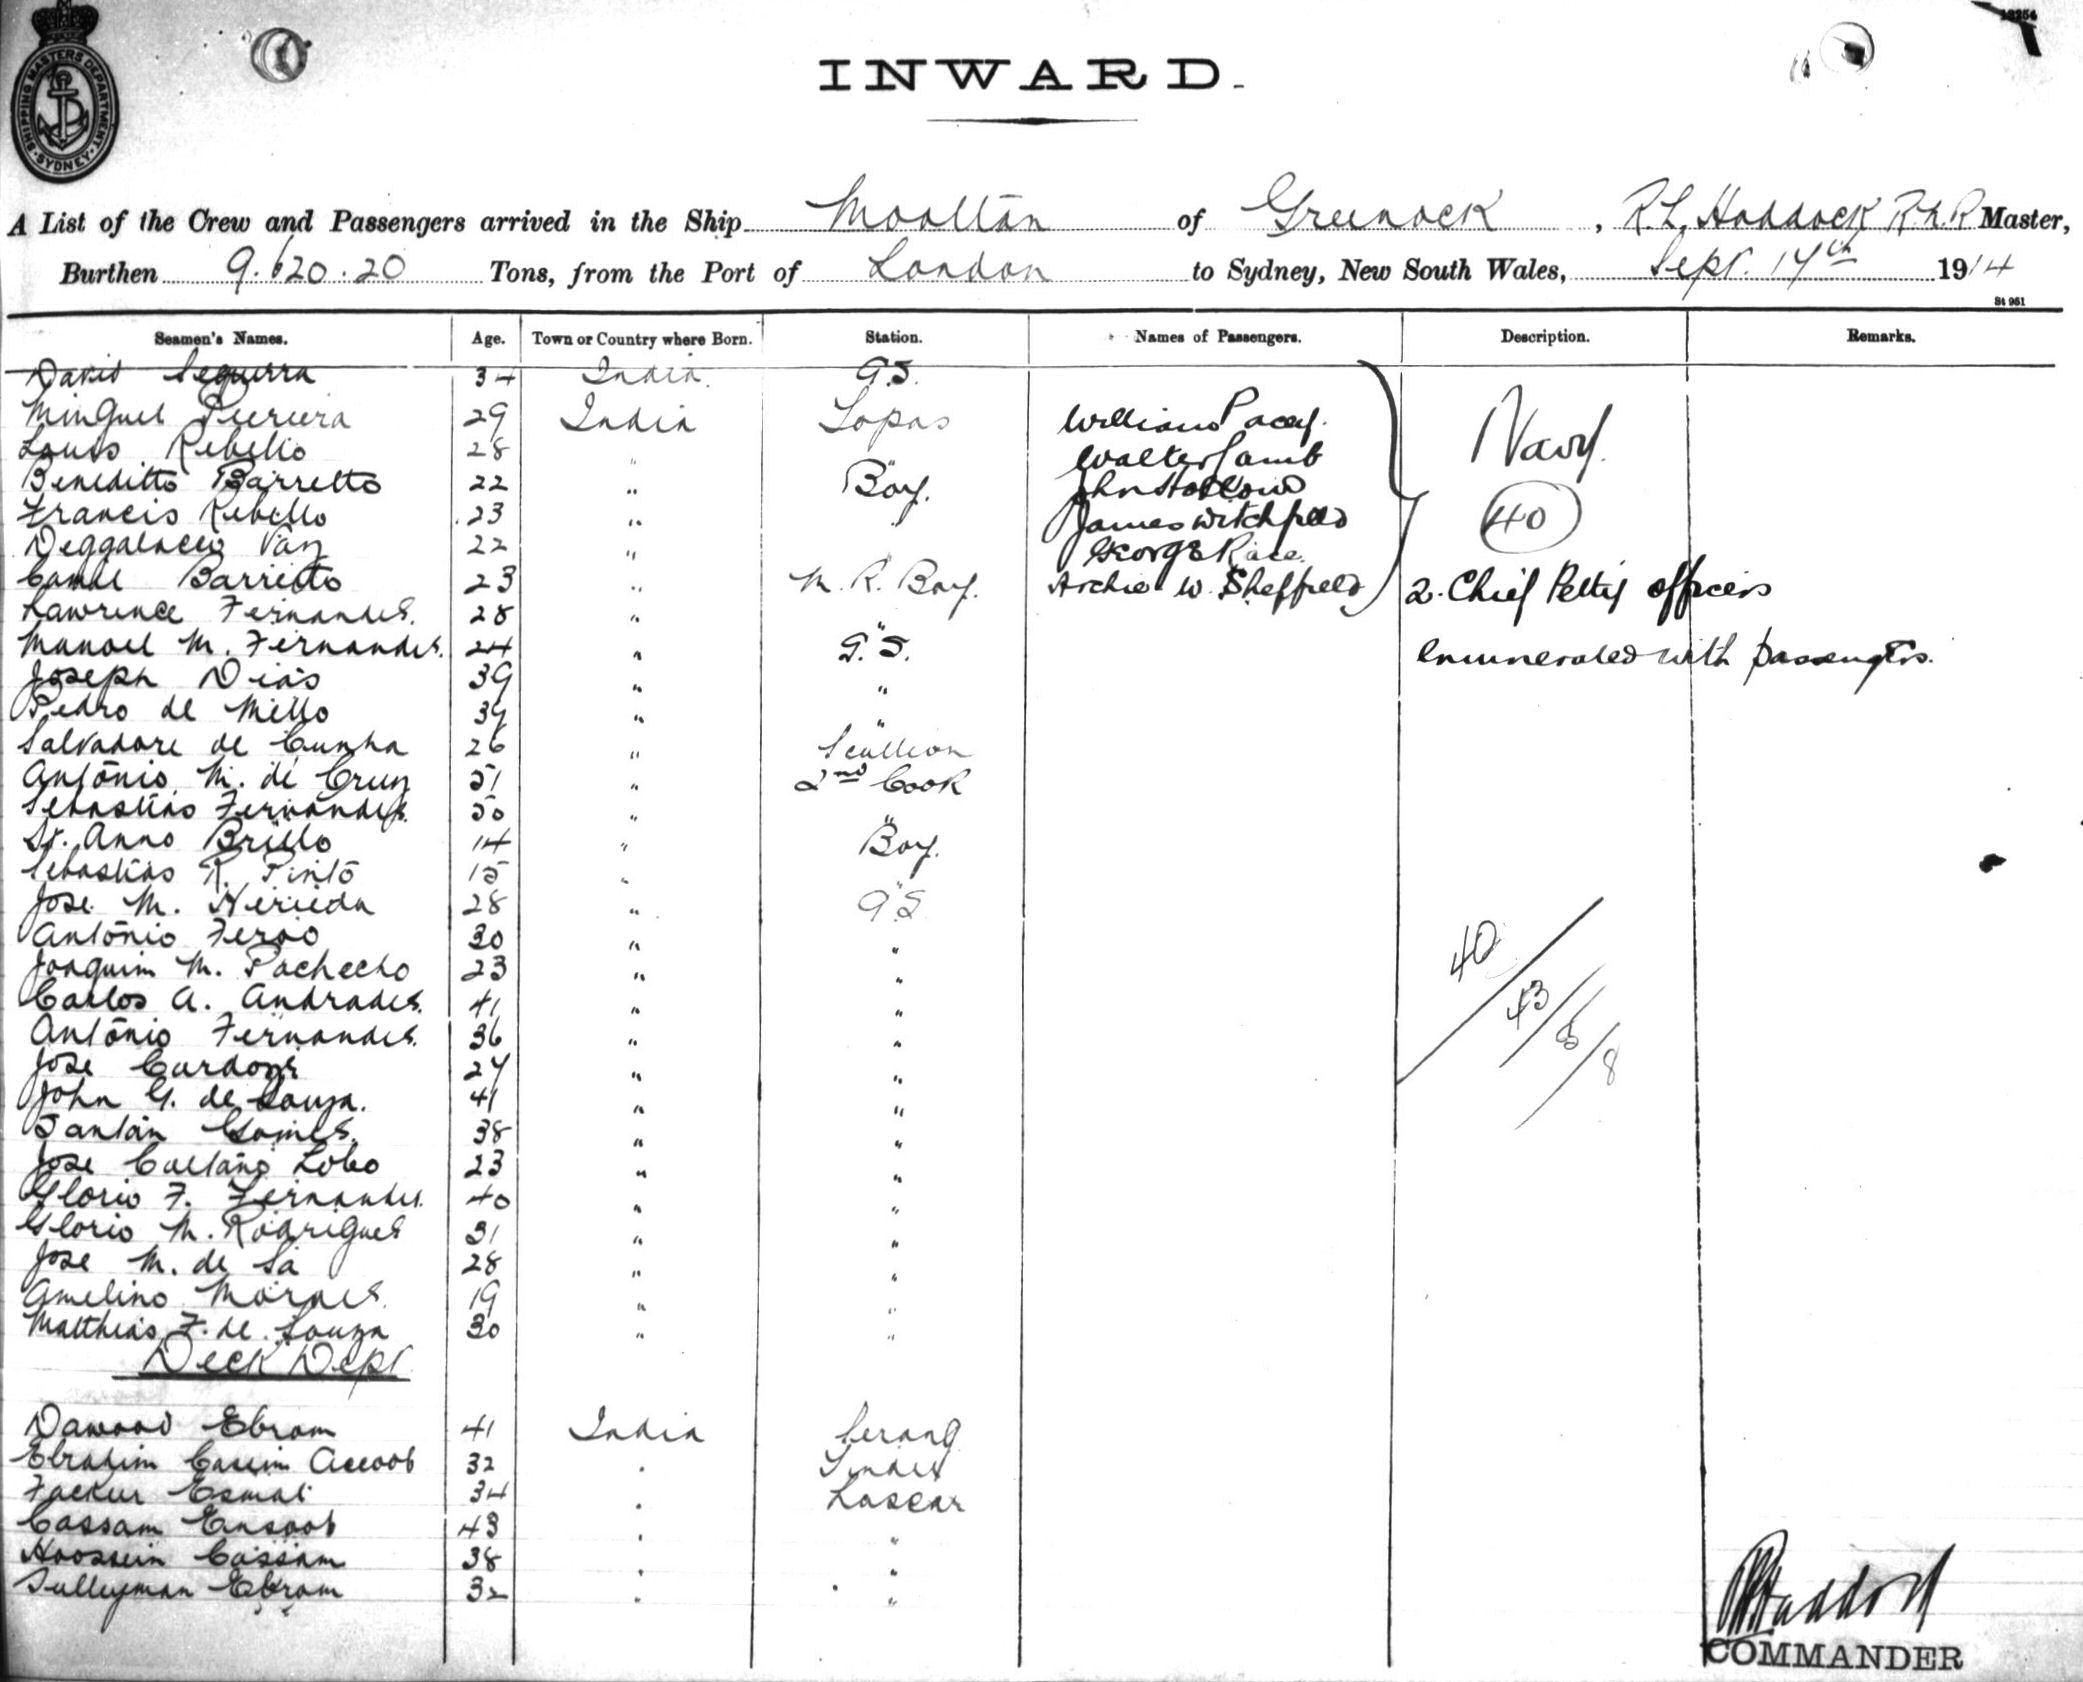 SHIPPING MASTERS DEPARTMENT. SYDNEY.
INWARD.
A List of the Crew and Passengers arrived in the Ship Mooltan of Greenock, R. L. Haddock R.N.R Master,
Burthen 9.620.20 Tons, from the Port of London to Sydney, New South Wales, Sept. 14th 1914
St 951
Seamen's Names. Age. Town or Country where Born. Station. Names of Passengers. Description. Remarks.
David Sequerra 34 India. G.S.
Minguel Puriera 29 India Topas William Pacey. Navy.
Louis Rebello 28 " " Walter Lamb
Beneditto Barretto 22 " Boy. John
Francis Rebello 23 " James Witchfield 40
Vaz 22 " George Race.
Barretto 23 " M. R. Boy. Archie W. Sheffield 2. Chief Petty officers
Lawrence Fernandes. 28 " "
Manoel M. Fernandes. 24 " G.S. enumerated with passengers.
Joseph Dias 39 " "
Pedro de Mello 34 " "
Salvadore de Cunha 26 " Scullion
Antonio M. de Cruz 51 " 2nd Cook
Sebastiao Fernandes. 50 " "
St. Anno Brillo 14 " Boy.
Sebastiao R. Pinto 15 " "
Jose M. 28 " G.S
Antonio Ferao 30 " "
Joaquim M. Pachecho 23 " "
Carlos A. Andrades. 41 " " 40
Antonio Fernandes. 36 " " 43
Jose Cardoze 27 " " 8
John G. de Souza. 41 " "
Santan Gomes. 38 " "
Jose Caetano Lobo 23 " "
Glorio F. Fernandes. 40 " "
Glorio M. Rodrigues 31 " "
Jose M. de Sa 28 " "
Amelino Moraes. 19 " "
Matthias F. de Souza 30 " "
Deck Dept.
Dawood Ebram 41 India Serang
Ebrahim Cassim Accoob 32 " Tindel
Fackur Esmal 34 " Lascar
Cassam 43 " "
Hoossein Cassam 38 " "
Sulleyman Ebram 32 " "
RHaddock
COMMANDER